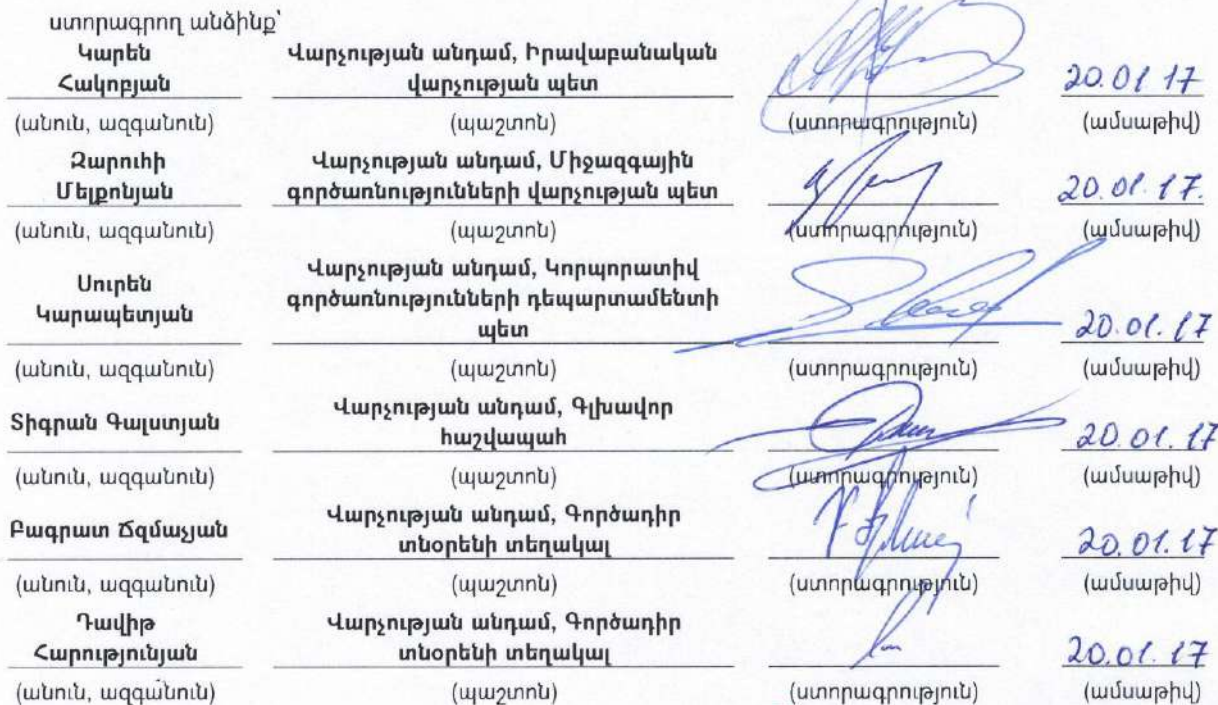 ստորագրող անձինք՝
Կարեն Վարչության անդամ, Իրավաբանական
Հակոբյան վարչության պետ 20.01 17
(անուն, ազգանուն) (պաշտոն) (ստորագրություն) (ամսաթիվ)
Զարուհի Վարչության անդամ, Միջազգային
Մելքոնյան գործառնությունների վարչության պետ 20.01.17.
(անուն, ազգանուն) (պաշտոն) (ստորագրություն) (ամսաթիվ)
Սուրեն Վարչության անդամ, Կորպորատիվ
Կարապետյան գործառնությունների դեպարտամենտի
պետ 20.01.17
(անուն, ազգանուն) (պաշտոն) (ստորագրություն) (ամսաթիվ)
Տիգրան Գալստյան Վարչության անդամ, Գլխավոր
հաշվապահ 20.01.17
(անուն, ազգանուն) (պաշտոն) (ստորագրություն) (ամսաթիվ)
Բագրատ Ճզմաչյան Վարչության անդամ, Գործադիր
տնօրենի տեղակալ 20.01.17
(անուն, ազգանուն) (պաշտոն) (ստորագրություն) (ամսաթիվ)
Դավիթ Վարչության անդամ, Գործադիր
Հարությունյան տնօրենի տեղակալ 20.01.17
(անուն, ազգանուն) (պաշտոն) (ստորագրություն) (ամսաթիվ)